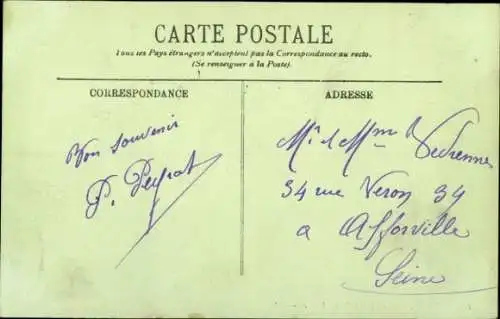 CARTE POSTALE
Tous les Pays étrangers n'acceptent pas la Correspondance au recto.
(Se renseigner à la Poste).
CORRESPONDANCE
ADRESSE
Bon souvenir
P. Peyrat
Mr et Mme
34 rue Véron 34
a Alforville
Seine